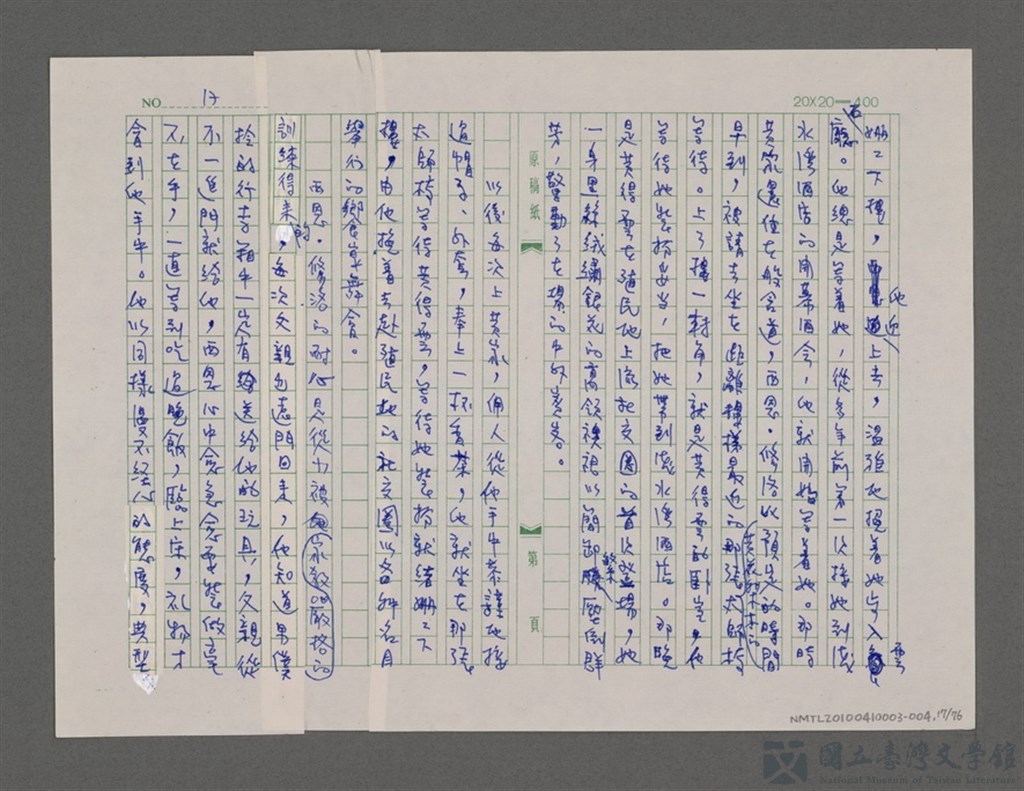 NO 17
20X20=400
姍姍下樓，他迎上去，溫雅地挽著她步入
廳。他總是等著她，從多年前第一次接她到淺
水灣酒店的開幕酒會，他就開始等著她。那時
黃家還住在般含道，西恩．修洛以預定的時間
早到，被請去坐在距離樓梯最近的那張太師椅
等待。上了樓一轉角，就是黃得雲的臥室，他
等待她裝扮妥當，把她帶到淺水灣酒店。那晚
是黃得雲在殖民地上流社交圈的首次登場，她
一身黑絲絨繡銀花的高領禊袍以簡卸繁壓倒群
芳，驚動了在場的中外賓客。
原稿紙
第 頁
以後每次上黃家，佣人從他手中恭謹地接
過帽子、外套，奉上一杯香茶，他就坐在那張
太師椅等待黃得雲，等待她裝扮就緒姍姍下
樓，由他挽著去赴殖民地的社交圈以各種名目
舉行的鄉食宴舞會。
西恩．修洛的耐心是從小被家教嚴格的
訓練得來的，每次父親包恚門回來，他知道男僕
拎的行李箱中一定有送給他的玩具，父親從
不一進門就給他，西恩心中愈急愈要裝做毫
不在乎，一直等到吃過晚飯，臨上床，礼物才
會到他手中。他以同樣漫不經心的態度，典型
NMTL20100410003-004.17/76
國立臺灣文學館
National Museum of Taiwan Literature